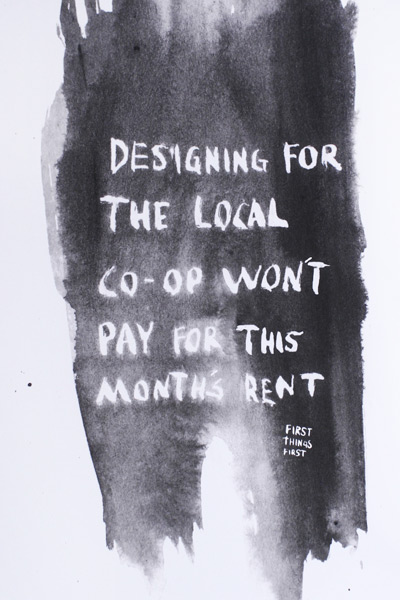 DESIGNING FOR
THE LOCAL
CO-OP WON'T
PAY FOR THIS
MONTH'S RENT
FIRST
THINGS
FIRST